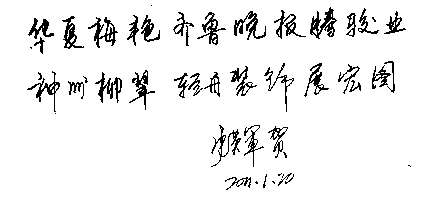 华夏梅艳 齐鲁晚报腾骏业
神州柳翠 轻舟装饰展宏图
贺
2011.1.20